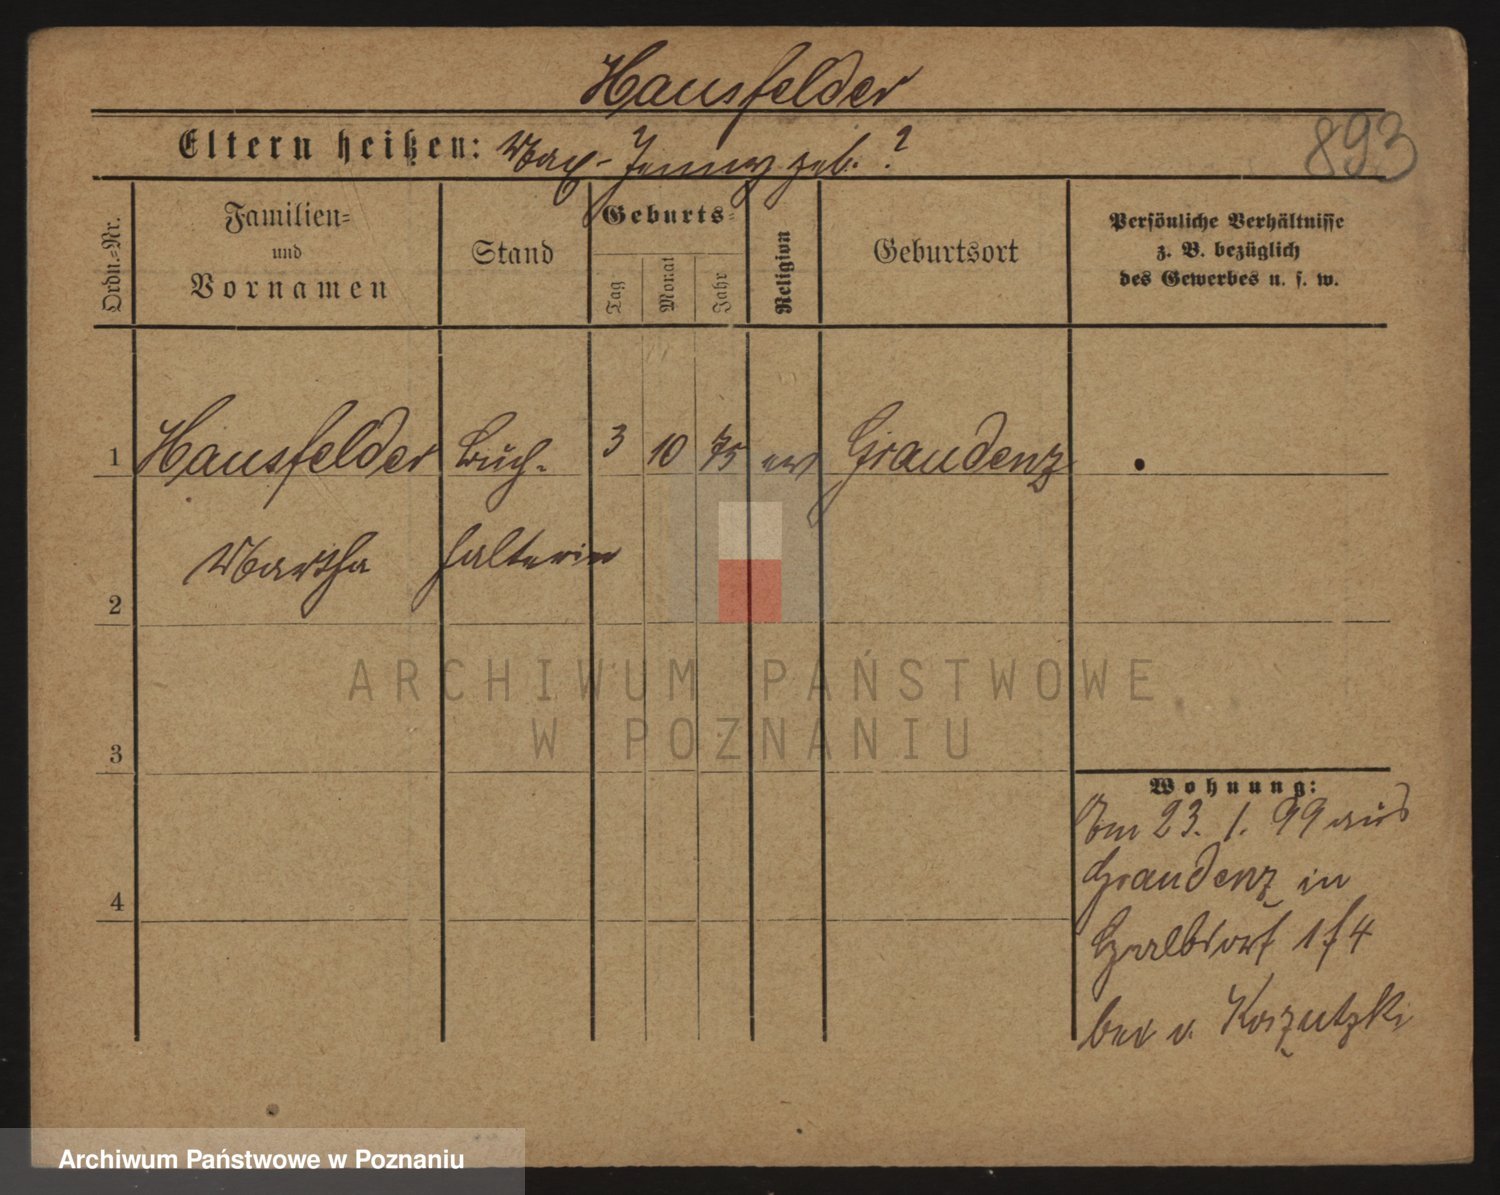 Hausfelder
Eltern heißen: Max - Jenny geb. ?
893
Ordn.=Nr.
Familien=
und
Vornamen
Stand
Geburts=
Tag
Monat
Jahr
Religion
Geburtsort
Persönliche Verhältnisse
z. B. bezüglich
des Gewerbes u. s. w.
1 Hausfelder Buch- 3 10 75 ev Graudenz
Martha halterin
2
3
4
Wohnung:
Am 23. 1. 99 aus
Graudenz in
Halbdorf 1f4
bei v. Koszutzki
ARCHIWUM PAŃSTWOWE
W POZNANIU
Archiwum Państwowe w Poznaniu